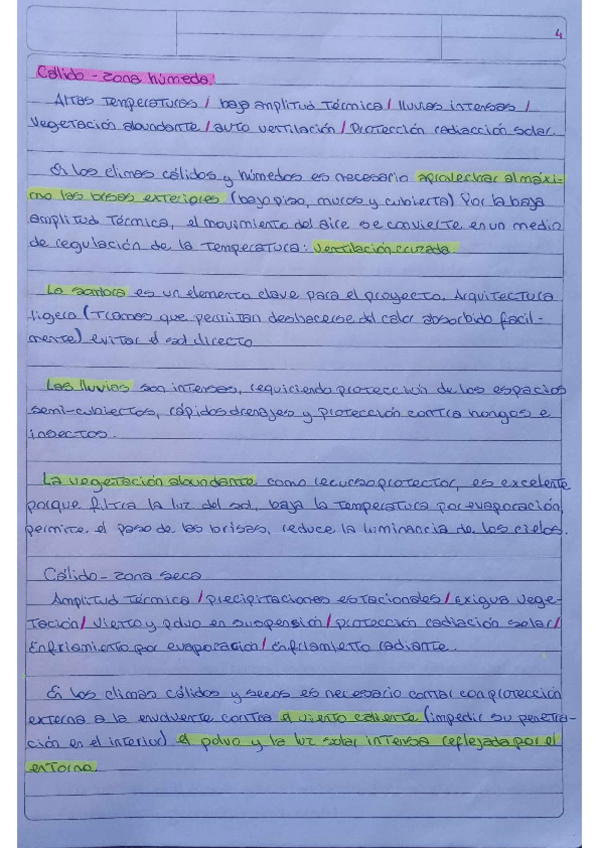 4
Cálido - zona húmeda.
Altas Temperaturas / baja amplitud Térmica / lluvias intensas /
Vegetación abundante / auto ventilación / Protección radiacción solar.
En los climas cálidos y húmedos es necesario aprovechar al máxi-
mo las brisas exteriores (bajo piso, muros y cubierta) Por la baja
amplitud Térmica, el movimiento del aire se convierte en un medio
de regulación de la Temperatura: ventilación cruzada.
La sombra es un elemento clave para el proyecto. Arquitectura
ligera (Tramos que permitan deshacerse del calor absorbido fácil-
mente) evitar el sol directo
Las lluvias son intensas, requiriendo protección de los espacios
semi-cubiertos, rápidos drenajes y protección contra hongos e
insectos.
La vegetación abundante como recurso protector, es excelente
porque filtra la luz del sol, baja la temperatura por evaporación,
permite el paso de las brisas, reduce la luminancia de los cielos.
Cálido - zona seca
Amplitud Térmica / precipitaciones estacionales / exigua vege-
Tación / viento y polvo en suspensión / protección radiación solar /
Enfriamiento por evaporación / enfriamiento radiante.
En los climas cálidos y secos es necesario contar con protección
externa a la envolvente contra el viento caliente (impedir su penetra-
ción en el interior) el polvo y la luz solar intensa reflejada por el
entorno.